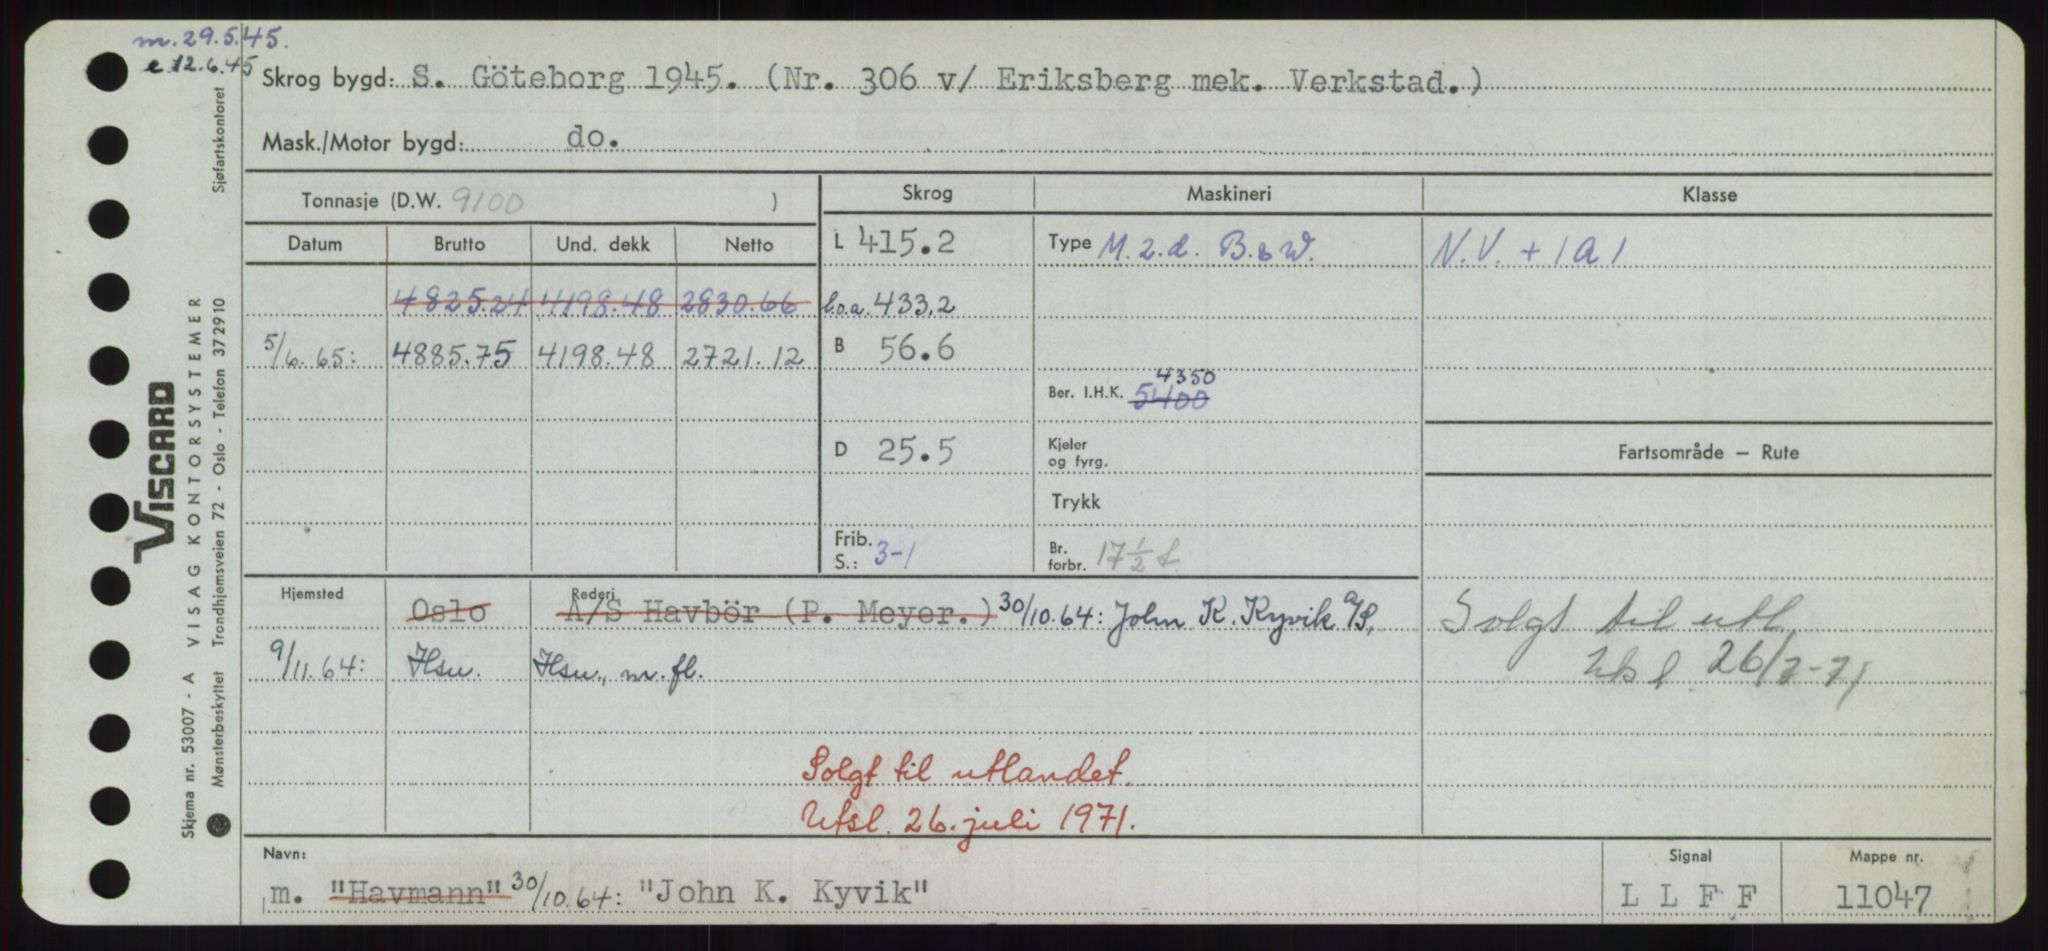 m. 29.5.45.
e. 12.6.45
Skrog bygd: S. Göteborg 1945. (Nr. 306 v/ Eriksberg mek. Verkstad.)
Mask./Motor bygd: do.
Tonnasje (D.W. 9100 )
Skrog
Maskineri
Klasse
Datum
Brutto
Und. dekk
Netto
L 415.2
Type M. 2.d. B. & W.
N.V. + 1A1
4825.24 4198.48 2830.66
l.o.a. 433.2
5/6. 65: 4885.75 4198.48 2721.12
B 56.6
Ber. I.H.K. 5400 4350
D 25.5
Kjeler
og fyrg.
Fartsområde — Rute
Trykk
Frib.
S.: 3-1
Br.
forbr. 17 ½ t.
Hjemsted
Rederi
Oslo A/S Havbör (P. Meyer.) 30/10.64: John K. Kyvik A/S,
9/11.64: Hsu. Hsu., m. fl.
Solgt til utl.
Utsl 26/7-71
Solgt til utlandet.
Utsl. 26. juli 1971.
Navn:
m. "Havmann" 30/10.64: "John K. Kyvik"
Signal
L L F F
Mappe nr.
11047
VISCARD
Skjema nr. 53007 - A VISAG KONTORSYSTEMER
Mønsterbeskyttet Trondhjemsveien 72 - Oslo - Telefon 372910 Sjøfartskontoret